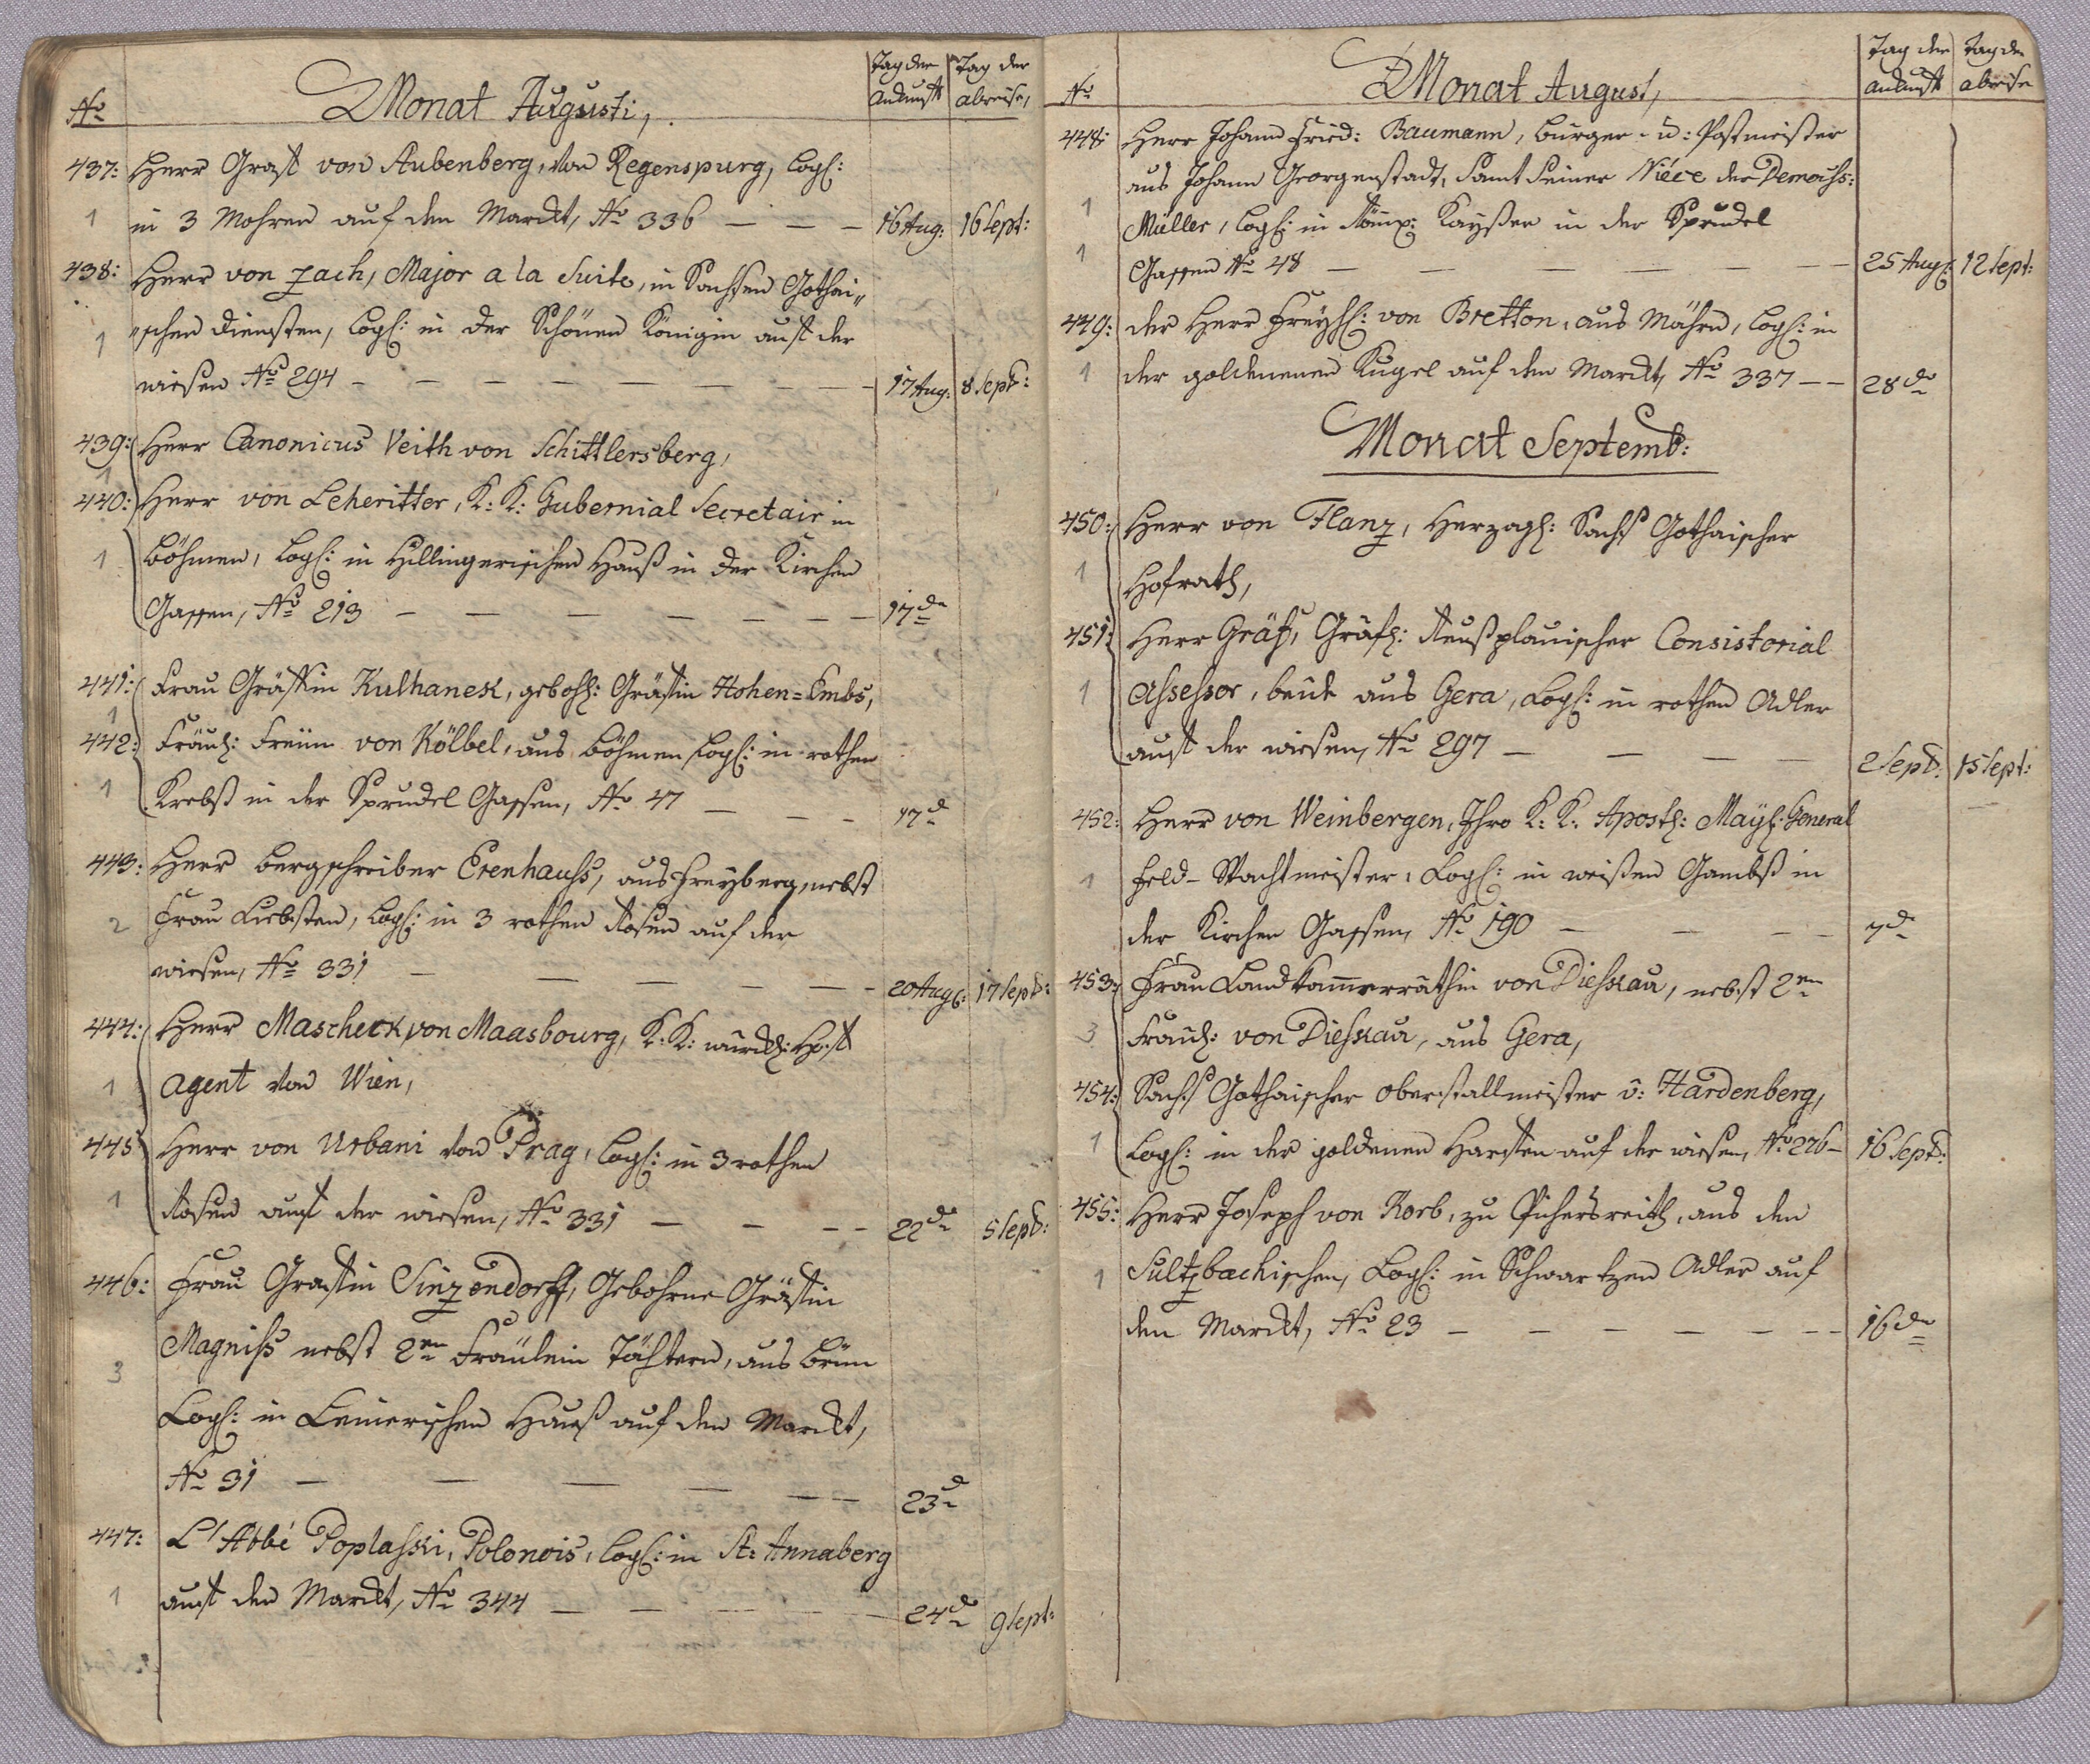 No
Monat Augusti,
Tag der
Ankunft
Tag der
abreise,
437: Herr Graff von Aubenberg, von Regenspurg, Log:
1 in 3 Mohren auf den Marckt, No 336 — — — 16 Aug: 16 Sept:
438: Herr von Zach, Major a la Suite, in Sachsen Gothai„
1 „schen Diensten, Log: in der Schönen Königin auff der
wiesen No 294 — — — — — — — — 17 Aug: 8 Sept:
439: Herr Canonicus Veith von Schittlersberg,
1
440: Herr von Leheritter, K: K: Gubernial Secretair in
1 Böhmen, Log: in Hillingerischen Hauß in der Kirchen
Gassen, No 213 — — — — — — — 17 do
441: Frau Gräffin Kulhanek, geboh: Gräffin Hohen=Embs,
1
442: Fräul: Freiin von Kölbel, aus Böhmen Log: in rothen
1 Krebß in der Sprudel Gassen, No 47 — — — 17 d
443: Herr Bergschreiber Erenhauss, aus Freyberg, nebst
2 Frau Liebsten, Log: in 3 rothen Rosen auf der
wiesen, No 331 — — — — — 20 Aug: 17 Sept:
444: Herr Mascheck von Maasbourg, K: K: würckl: Hoff
1 Agent von Wien,
445 Herr von Urbani von Prag, Log: in 3 rothen
1 Rosen auff der wiesen, No 331 — — — — 22 do 5 Sept:
446: Frau Graffin Sinzendorff, Gebohrne Gräffin
3 Magniss nebst 2en Fräulein Töchtern, aus Brün
Log: in Leinerischen Hauß auf den Marckt,
No 31 — — — — — — 23 d
447: L'Abbé Poplasski, Polonois, Log: in St: Annaberg
1 auff den Marckt, No 344 — — — — — 24 do 9 Sept:
No
Monat August,
Tag der
ankunft
Tag der
abreise
448: Herr Johann Fried: Baumann, Burger- u: Postmeister
aus Johann Georgenstadt, samt seiner Niéce der Demoiss:
1 Müller, Log: in Römi: Kayßer in der Sprudel
1 Gassen No 48 — — — — — — 25 Aug: 12 Sept:
449: der Herr Freyh: von Bretton, aus Mähren, Log: in
1 der goldenenen Kugel auf den Marckt, No 337 — — 28 do
Monat Septemb:
450: Herr von Flanz, Herzogl: Sachs Gothaischer
1 Hofrath,
451: Herr Gräf, Gräfl: Reußplauischer Consistorial
1 Assessor, beide aus Gera, Log: in rothen Adler
auff der wiesen, No 297 — — — — 2 Sept: 15 Sept:
452: Herr von Weinbergen, Ihro K: K: Apost: May: General
1 Feld-Wachtmeister, Log: in weißen Gambß in
der Kirchen Gassen, No 190 — — — — 7 d
453: Frau Landkammerräthin von Diesskau, nebst 2en
3 Fräul: von Diesskau, aus Gera,
454: Sachs Gothaischer Oberstallmeister v: Hardenberg,
1 Log: in der goldenen Harffen auf der wiesen, No 276 — 16 Sept:
455: Herr Joseph von Korb, zu Pichersreith, aus den
1 Sultzbachischen, Log: in Schwartzen Adler auf
den Marckt, No 23 — — — — — — 16 do